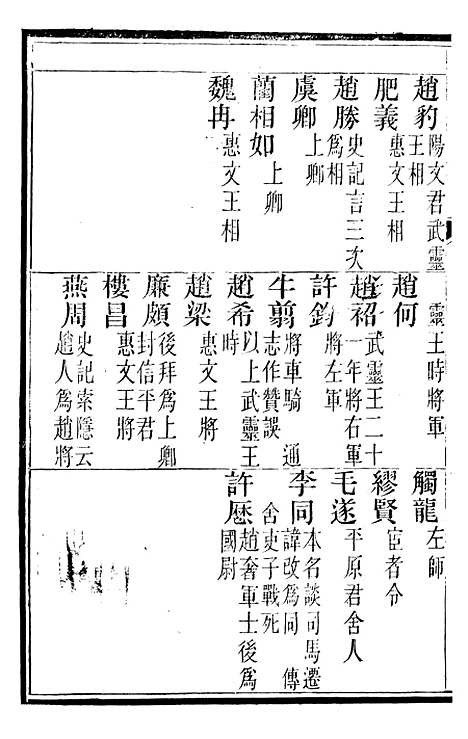 趙豹陽文君武靈王相
肥義惠文王相
趙勝史記言三次為相
虞卿上卿
藺相如上卿
魏冉惠文王相
趙何靈王時將軍
趙袑武靈王二十一年將右軍
許鈞將左軍
牛翦將車騎通志作贊誤
趙希以上武靈王時
趙梁惠文王將
廉頗後拜為上卿封信平君
樓昌惠文王將
燕周史記索隱云趙人為趙將
觸龍左師
繆賢宦者令
毛遂平原君舍人
李同本名談司馬遷諱改為同傳舍吏子戰死
許歷趙奢軍士後為國尉